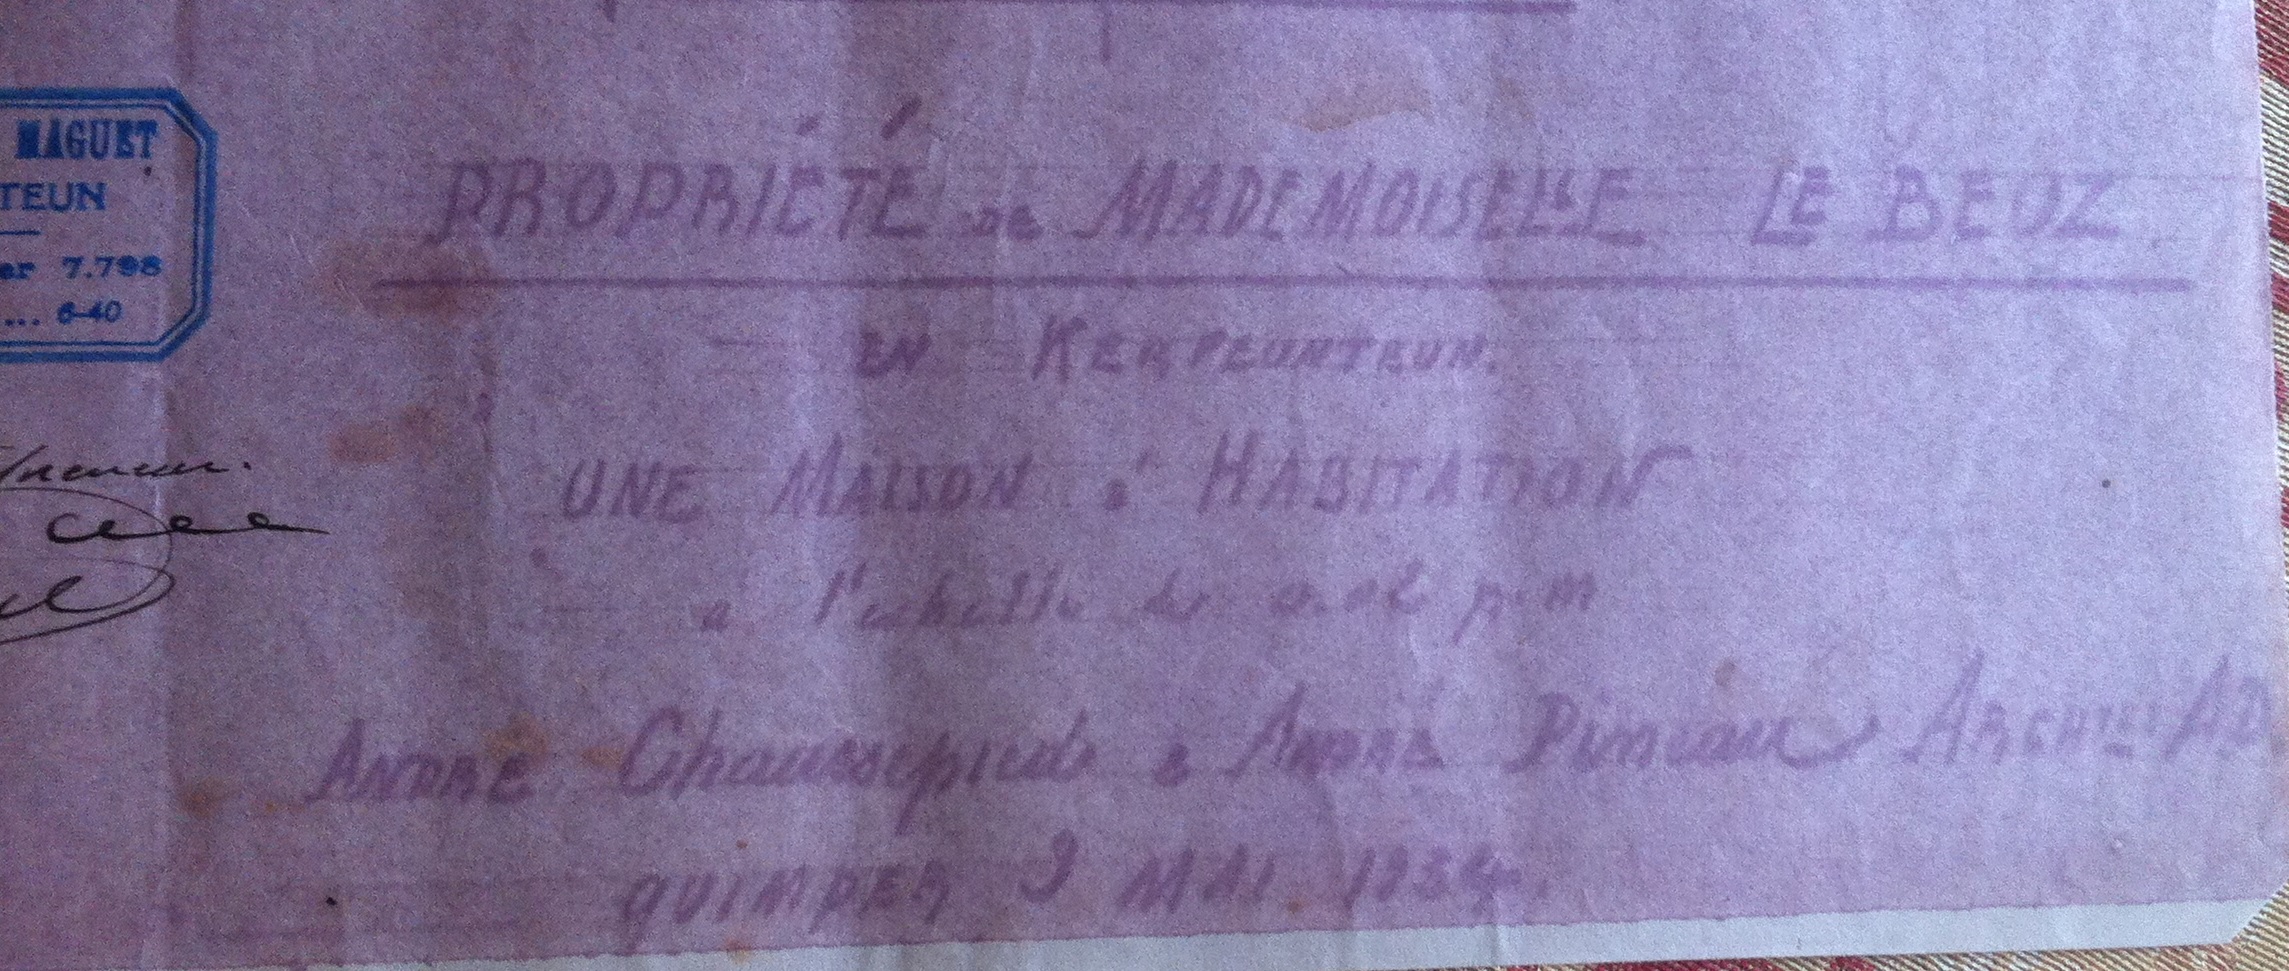 MAGUET
TEUN
er 7.798
... 6-40
PROPRIÉTÉ DE MADEMOISELLE LE BEUZ
EN KERFEUNTEUN.
UNE MAISON d' HABITATION
a l'echelle de 0.02 p.m
ANDRE Chaussepied & ANDRE Pineau ARCHtes AD
QUIMPER 9 MAI 1934.